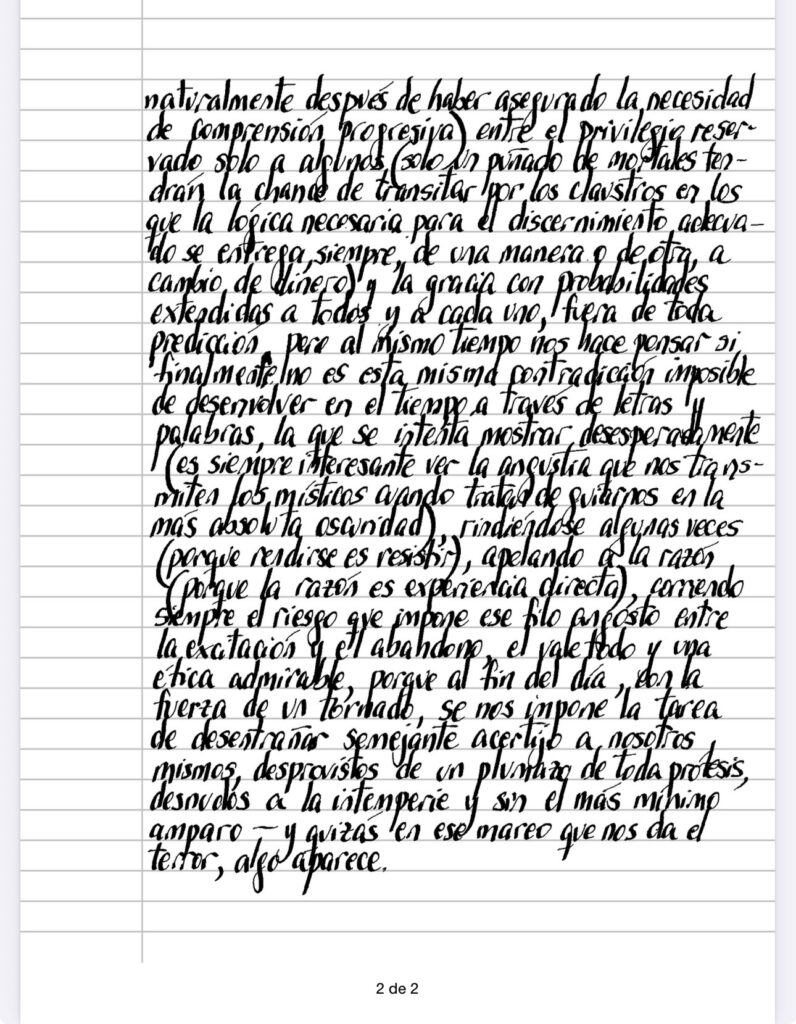 naturalmente después de haber asegurado la necesidad
de comprensión progresiva) entre el privilegio reser-
vado solo a algunos (solo un puñado de mortales ten-
drán la chance de transitar por los claustros en los
que la lógica necesaria para el discernimiento adecua-
do se entrega, siempre, de una manera o de otra, a
cambio de dinero) y la gracia con probabilidades
extendidas a todos y a cada uno, fuera de toda
predicción, pero al mismo tiempo nos hace pensar si
finalmente no es esta misma contradicción imposible
de desenvolver en el tiempo a través de letras y
palabras, la que se intenta mostrar desesperadamente
(es siempre interesante ver la angustia que nos trans-
miten los místicos cuando tratan de guiarnos en la
más absoluta oscuridad), rindiéndose algunas veces
(porque rendirse es resistir), apelando a la razón
(porque la razón es experiencia directa), corriendo
siempre el riesgo que impone ese filo angosto entre
la excitación y el abandono, el vale todo y una
ética admirable, porque al fin del día, con la
fuerza de un tornado, se nos impone la tarea
de desentrañar semejante acertijo a nosotros
mismos, desprovistos de un plumazo de toda prótesis,
desnudos a la intemperie y sin el más mínimo
amparo — y quizás en ese mareo que nos da el
terror, algo aparece.
2 de 2